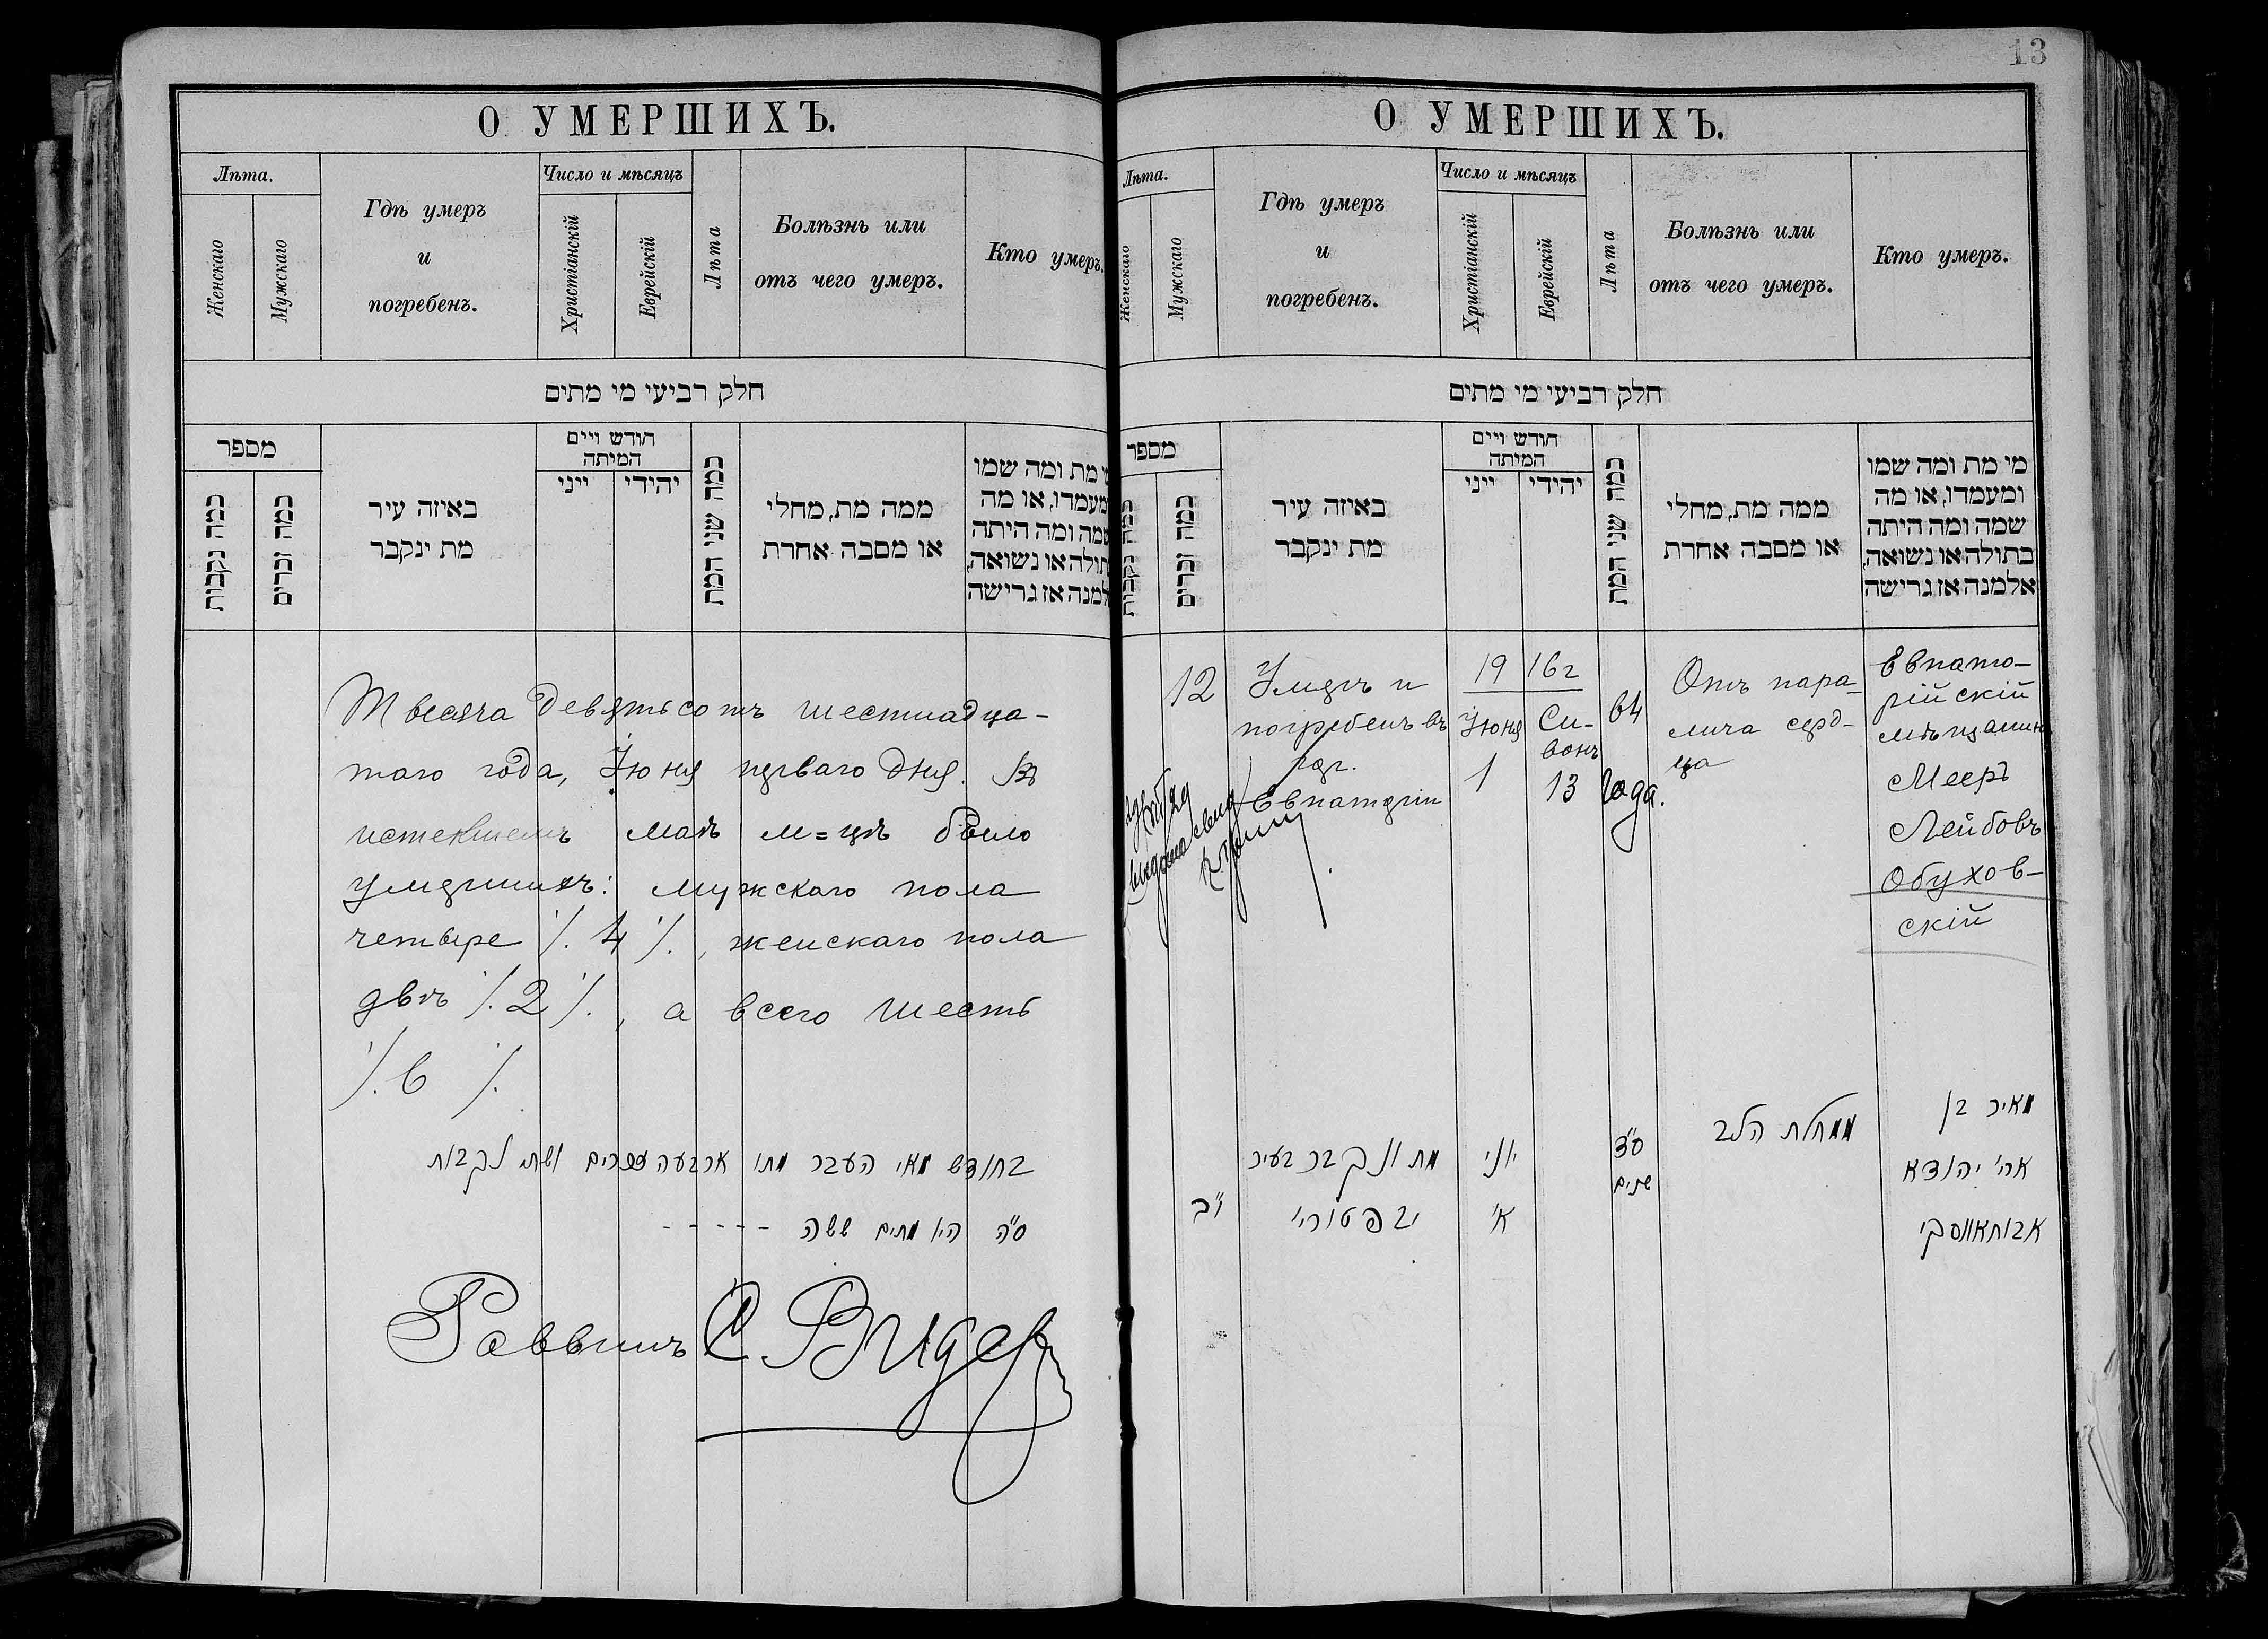 О УМЕРШИХЪ.
Лѣта.
Женскаго
Мужскаго
Гдѣ умеръ
и
погребенъ.
Число и мѣсяцъ
Христіанскій
Еврейскій
Лѣта
Болѣзнь или
отъ чего умеръ.
Кто умеръ.
חלק רביעי מי מתים
מספר
כמה נקבות
כמה זכרים
באיזה עיר
מת ינקבר
חודש ויים
המיתה
ייני
יהידי
כמה שני המת
ממה מת, מחלי
או מסבה אחרת
מי מת ומה שמו
ומעמדו, או מה
שמה ומה היתה
בתולה או נשואה,
אלמנה אז גרישה
Тысяча девятьсотъ шестнадца-
таго года, Іюня перваго дня. Въ
истекшемъ маѣ м=цѣ было
умершихъ: мужскаго пола
четыре /. 4 /. , женскаго пола
двѣ /. 2 /. , а всего шесть
/. 6 /.
בחודש מאי העבר מתו ארבעה זכרים ושתי נקבות
ס"ה היו מתים ששה - - - - -
Раввинъ
13
О УМЕРШИХЪ.
Лѣта.
Женскаго
Мужскаго
Гдѣ умеръ
и
погребенъ.
Число и мѣсяцъ
Христіанскій
Еврейскій
Лѣта
Болѣзнь или
отъ чего умеръ.
Кто умеръ.
חלק רביעי מי מתים
מספר
כמה נקבות
כמה זכרים
באיזה עיר
מת ינקבר
חודש ויים
המיתה
ייני
יהידי
כמה שני המת
ממה מת, מחלי
או מסבה אחרת
מי מת ומה שמו
ומעמדו, או מה
שמה ומה היתה
בתולה או נשואה,
אלמנה אז גרישה
12
Умеръ и
погребенъ въ
гор.
Евпаторіи
19 16г
Іюня
1
Си-
вонъ
13
64
года.
Отъ пара-
лича серд-
ца
Евпато-
рійскій
мѣщанинъ
Мееръ
Лейбовъ
Обухов-
скій
י"ב
מת ונקבר בעיר
יבפטורייי
יוני
א'
ס"ד
שנים
ממחלת הלב
מאיר בן
ארי' יהודא
אבוחאווסקי